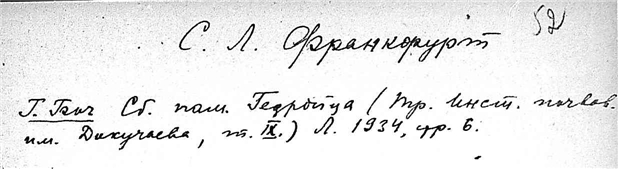 52
С. Л. Франкфурт
Сб. пам. Гедройца (Тр. Инст. почвов.
им. Докучаева, т. IX.) Л. 1934, стр. 6.